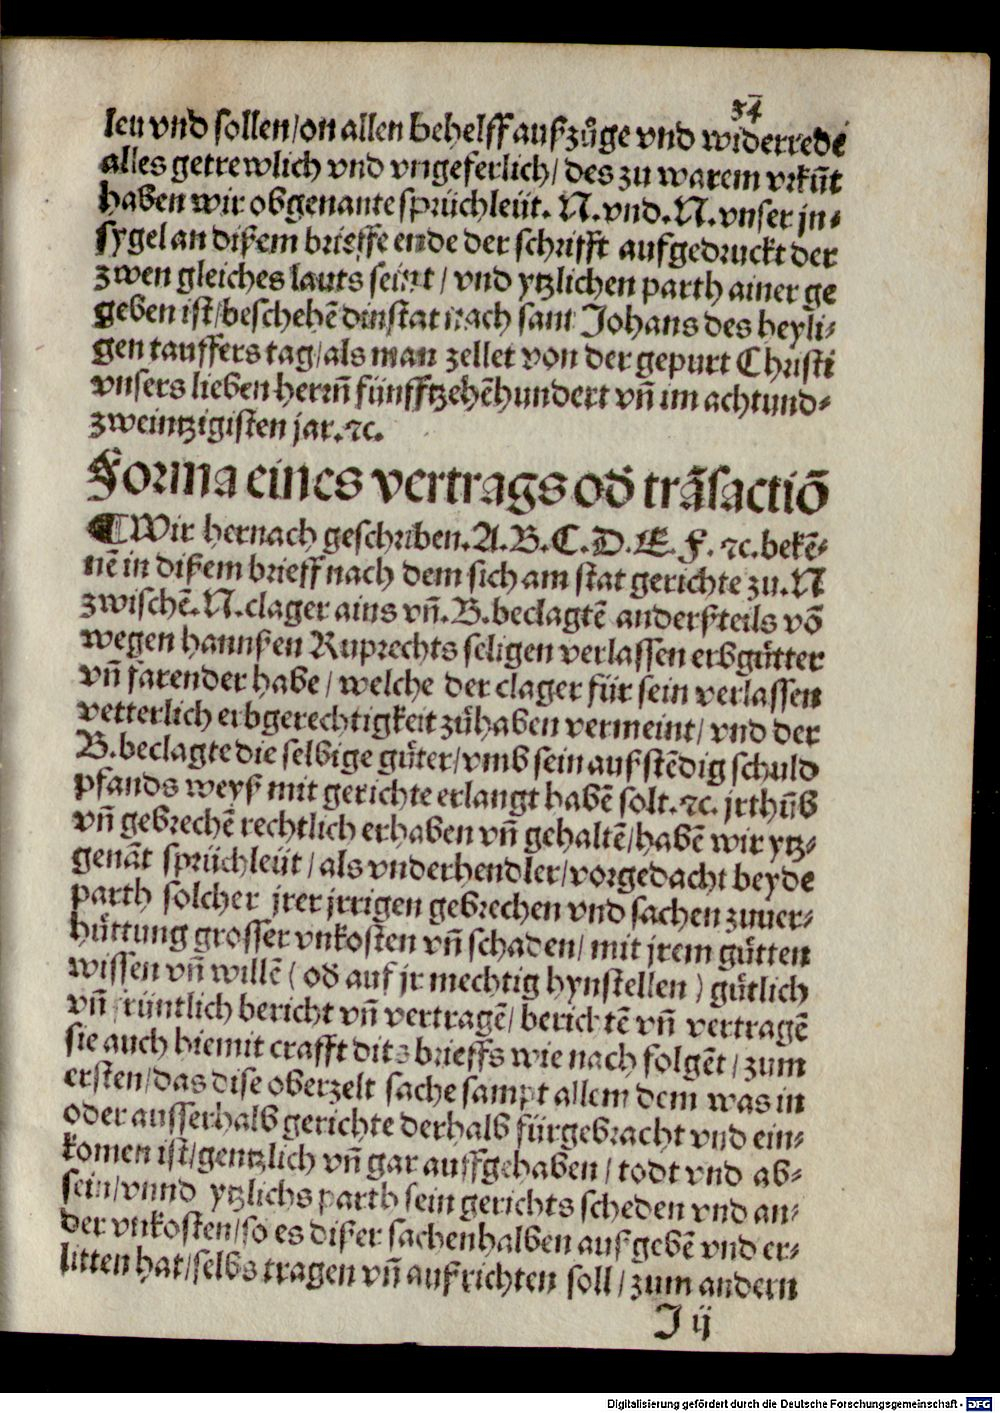 34
len vnd sollen/on allen behelff außzůge vnd widerrede
alles getrewlich vnd vngeferlich/ des zu warem vrkũt
haben wir obgenante sprüchleüt. N. vnd. N. vnser jn⸗
sygel an dißem brieffe ende der schrifft aufgedruckt der
zwen gleiches lauts seint/ vnd ytzlichen parth ainer ge
geben ist/beschehẽ dinstat nach sant Johans des heyli⸗
gen tauffers tag/als man zellet von der gepurt Christi
vnsers lieben herrñ fünfftzehẽhundert vñ im achtund⸗
zweintzigisten jar.ꝛc.
Forma eines vertrags od̃ trãsactiõ
¶Wir hernach geschriben.A.B.C.D.E.F.ꝛc.bekẽ⸗
nẽ in dißem brieff nach dem sich am stat gerichte zu.N
zwischẽ.N.clager ains vñ.B.beclagtẽ anderßteils võ
wegen hannßen Ruprechts seligen verlassen erbgůtter
vñ farender habe/ welche der clager für sein verlassen
vetterlich erbgerechtigkeit zůhaben vermeint/ vnd der
B.beclagte die selbige gůter/vmb sein außstẽdig schuld
pfands weyß mit gerichte erlangt habẽ solt.ꝛc. jrthũb
vñ gebrechẽ rechtlich erhaben vñ gehaltẽ/habẽ wir ytz⸗
genãt sprüchleüt/als vnderhendler/vorgedacht beyde
parth solcher jrer jrrigen gebrechen vnd sachen zuuer⸗
hůttung grosser vnkosten vñ schaden/ mit jrem gůtten
wissen vñ willẽ (od̃ auf jr mechtig hynstellen) gůtlich
vñ früntlich bericht vñ vertragẽ/ berichtẽ vñ vertragẽ
sie auch hiemit crafft dits brieffs wie nach folgẽt/ zum
ersten/das dise oberzelt sache sampt allem dem was in
oder ausserhalb gerichte derhalb fürgebracht vnd ein⸗
komen ist/gentzlich vñ gar auffgehaben/ todt vnd ab⸗
sein/vnnd ytzlichs parth sein gerichts scheden vnd an⸗
der vnkosten/so es dißer sachenhalben außgebẽ vnd er⸗
litten hat/selbs tragen vñ außrichten soll/ zum andern
J ij
Digitalisierung gefördert durch die Deutsche Forschungsgemeinschaft - DFG